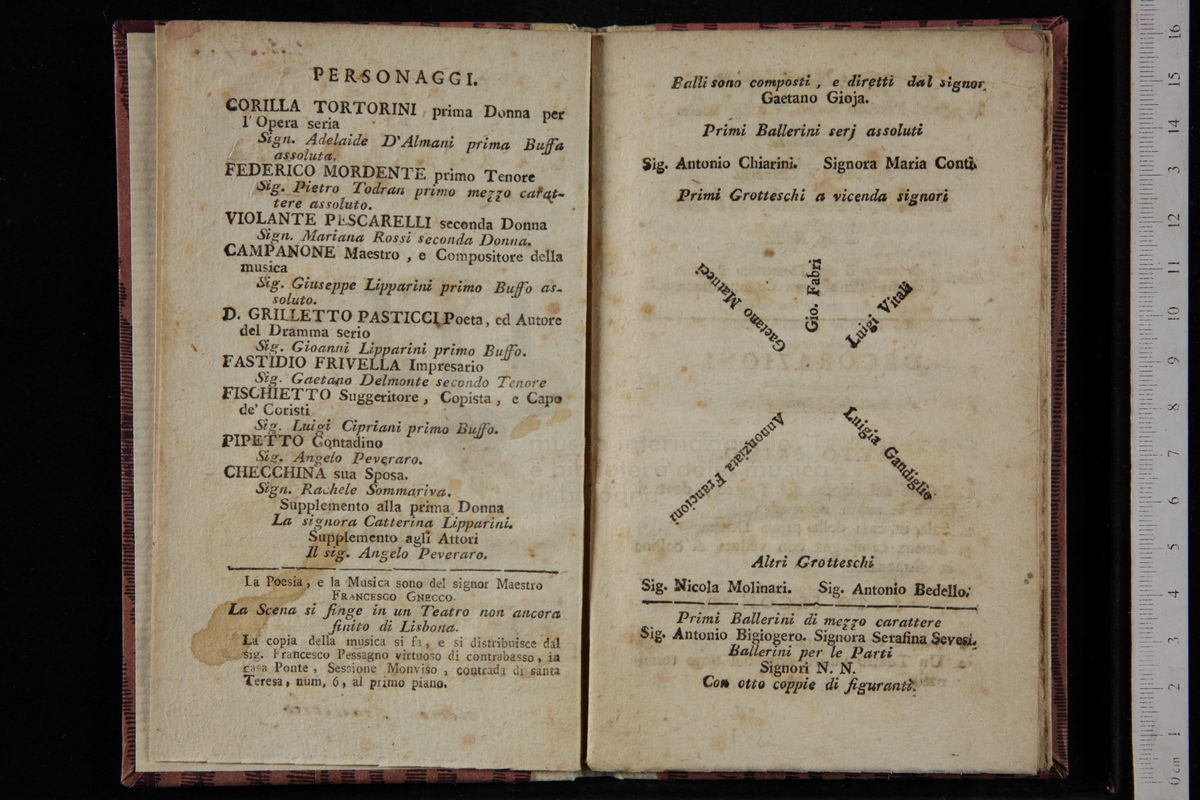 PERSONAGGI.
CORILLA TORTORINI prima Donna per
l' Opera seria
Sign. Adelaide D'Almani prima Buffa
assoluta.
FEDERICO MORDENTE primo Tenore
Sig. Pietro Todran primo mezzo carat-
tere assoluto.
VIOLANTE PESCARELLI seconda Donna
Sign. Mariana Rossi seconda Donna.
CAMPANONE Maestro, e Compositore della
musica
Sig. Giuseppe Lipparini primo Buffo as-
soluto.
D. GRILLETTO PASTICCI Poeta, ed Autore
del Dramma serio
Sig. Gioanni Lipparini primo Buffo.
FASTIDIO FRIVELLA Impresario
Sig. Gaetano Delmonte secondo Tenore
FISCHIETTO Suggeritore, Copista, e Capo
de' Coristi
Sig. Luigi Cipriani primo Buffo.
PIPETTO Contadino
Sig. Angelo Peveraro.
CHECCHINA sua Sposa.
Sign. Rachele Sommariva.
Supplemento alla prima Donna
La signora Catterina Lipparini.
Supplemento agli Attori
Il sig. Angelo Peveraro.
La Poesia, e la Musica sono del signor Maestro
FRANCESCO GNECCO.
La Scena si finge in un Teatro non ancora
finito di Lisbona.
La copia della musica si fa, e si distribuisce dal
sig. Francesco Pessagno virtuoso di contrabasso, in
casa Ponte, Sessione Monviso, contrada di santa
Teresa, num, 6, al primo piano.
Balli sono composti, e diretti dal signor
Gaetano Gioja.
Primi Ballerini serj assoluti
Sig. Antonio Chiarini. Signora Maria Conti.
Primi Grotteschi a vicenda signori
Gaetano Matucci
Gio. Fabri
Luigi Vitali
Annonziata Francioni
Luigia Gandiglio
Altri Grotteschi
Sig. Nicola Molinari. Sig. Antonio Bedello.
Primi Ballerini di mezzo carattere
Sig. Antonio Bigiogero. Signora Serafina Sevesi.
Ballerini per le Parti
Signori N. N.
Con otto coppie di figuranti.
0 cm 1 2 3 4 5 6 7 8 9 10 11 12 13 14 15 16